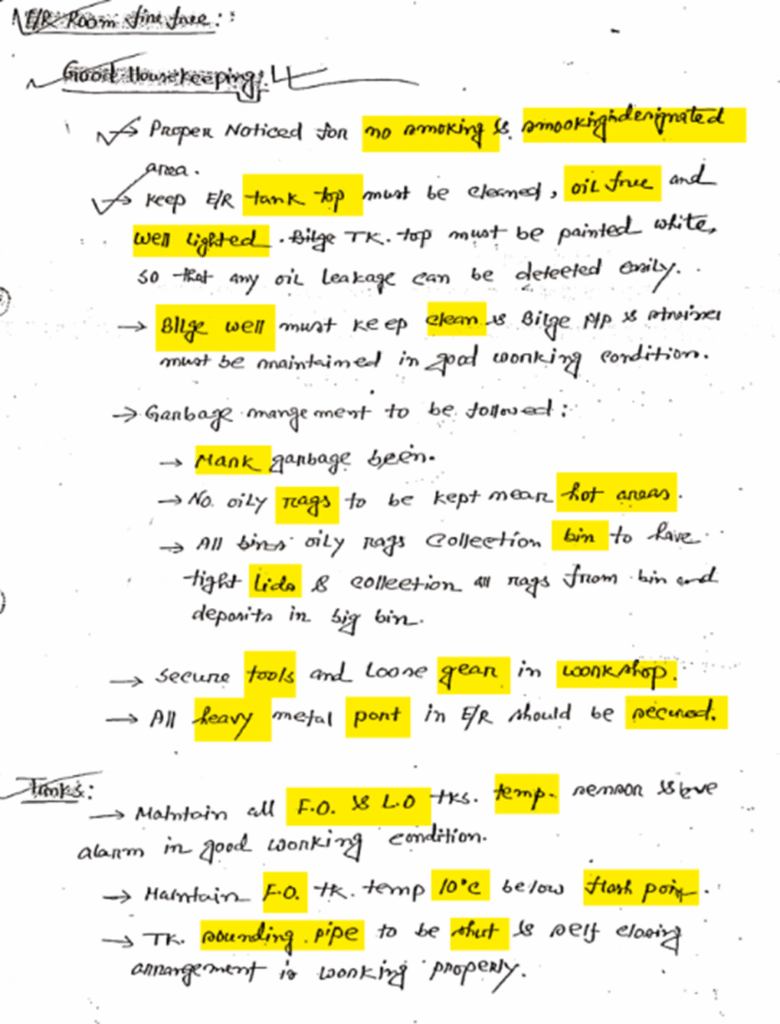 E/R Room fire free::
Good Housekeeping:
→ Proper Noticed for no smoking & smooking designated
area.
→ keep E/R tank top must be cleaned, oil free and
well lighted. Bilge TK. top must be painted white,
so that any oil leakage can be detected easily.
→ Bilge well must keep clean & Bilge P/P & strainer
must be maintained in good working condition.
→ Garbage mangement to be followed:
→ Mark garbage been.
→ No. oily rags to be kept near hot areas.
→ All bins oily rags collection bin to have
tight lids & collection all rags from bin and
deposits in big bin.
→ secure tools and loose gear in workshop.
→ All heavy metal part in E/R should be secured.
Tanks:
→ Maintain all F.O. & L.O tks. temp. sensor &
alarm in good working condition.
→ Maintain F.O. tk. temp 10°c below flash point.
→ TK. sounding pipe to be shut & self closing
arrangement is working properly.